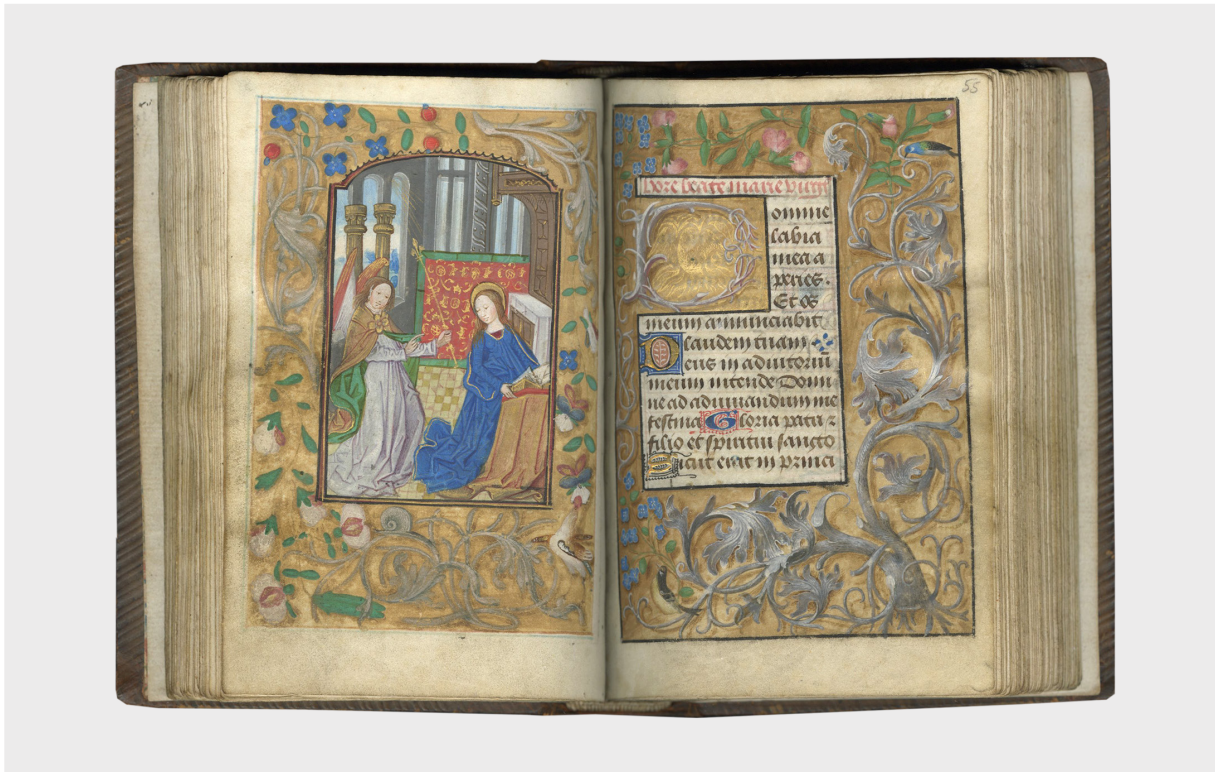 55
hore beate marie virg
Domine
labia
mea a
peries.
Et os
meum annunciabit
laudem tuam
Deus in adiutoriū
meum intende Domi
ne ad adiuuandum me
festina Gloria patri ⁊
filio et spiritui sancto
Sicut erat in princi